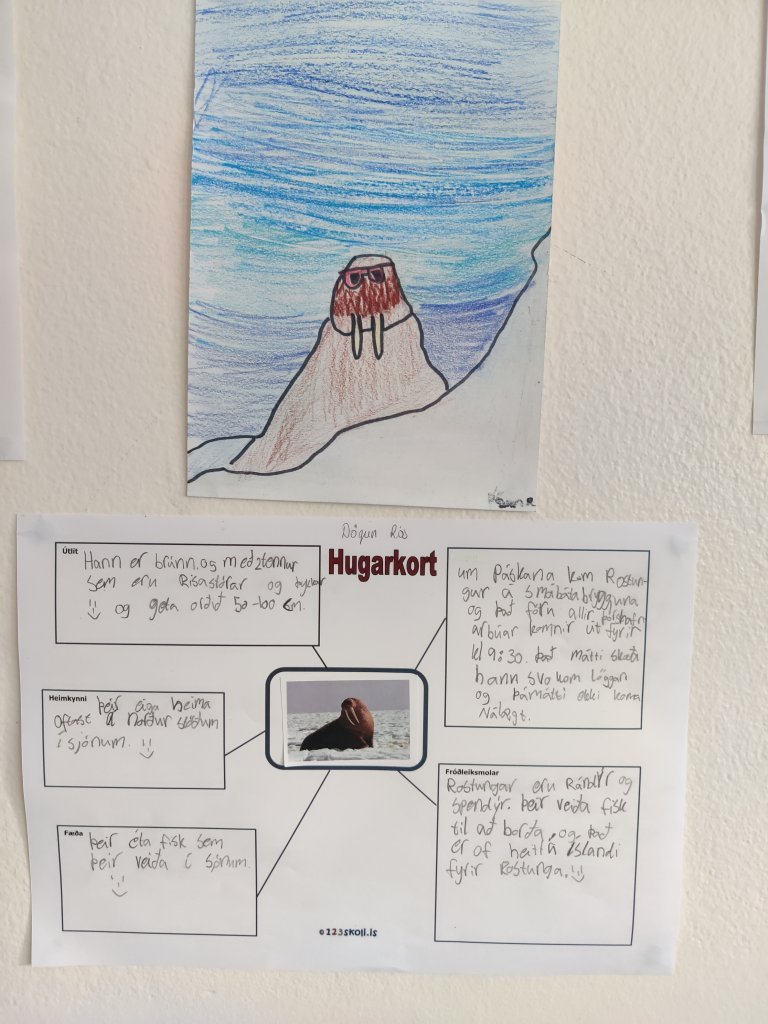 Dögun Rós
Hugarkort
Útlit
Hann er brúnn og með tennur
sem eru Risastórar og
og geta orðið 50-100 cm.
um Páskana kom Rostun-
gur á smábátabryggjuna
og það fóru allir þórshafn
arbúar komnir út fyrir
kl 9:30. það mátti skoða
hann svo kom löggan
og þá mátti ekki koma
Nálægt.
Heimkynni
þeir eiga heima
oftast á norður slóðum
í sjónum.
Fæða
þeir éta fisk sem
þeir veiða í sjónum.
Fróðleiksmolar
Rostungar eru Rándýr og
spendýr. þeir veiða fisk
til að borða, og það
er of heitt á íslandi
fyrir Rostunga.
©123skoli.is